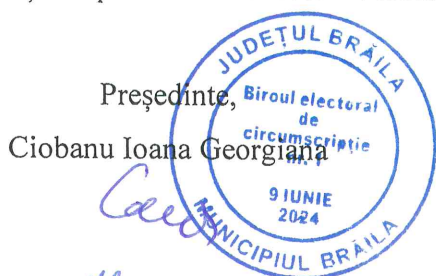 Președinte,
Ciobanu Ioana Georgiana
JUDEȚUL BRĂILA
Biroul electoral
de
circumscripție
nr. 1
9 IUNIE
2024
MUNICIPIUL BRĂILA